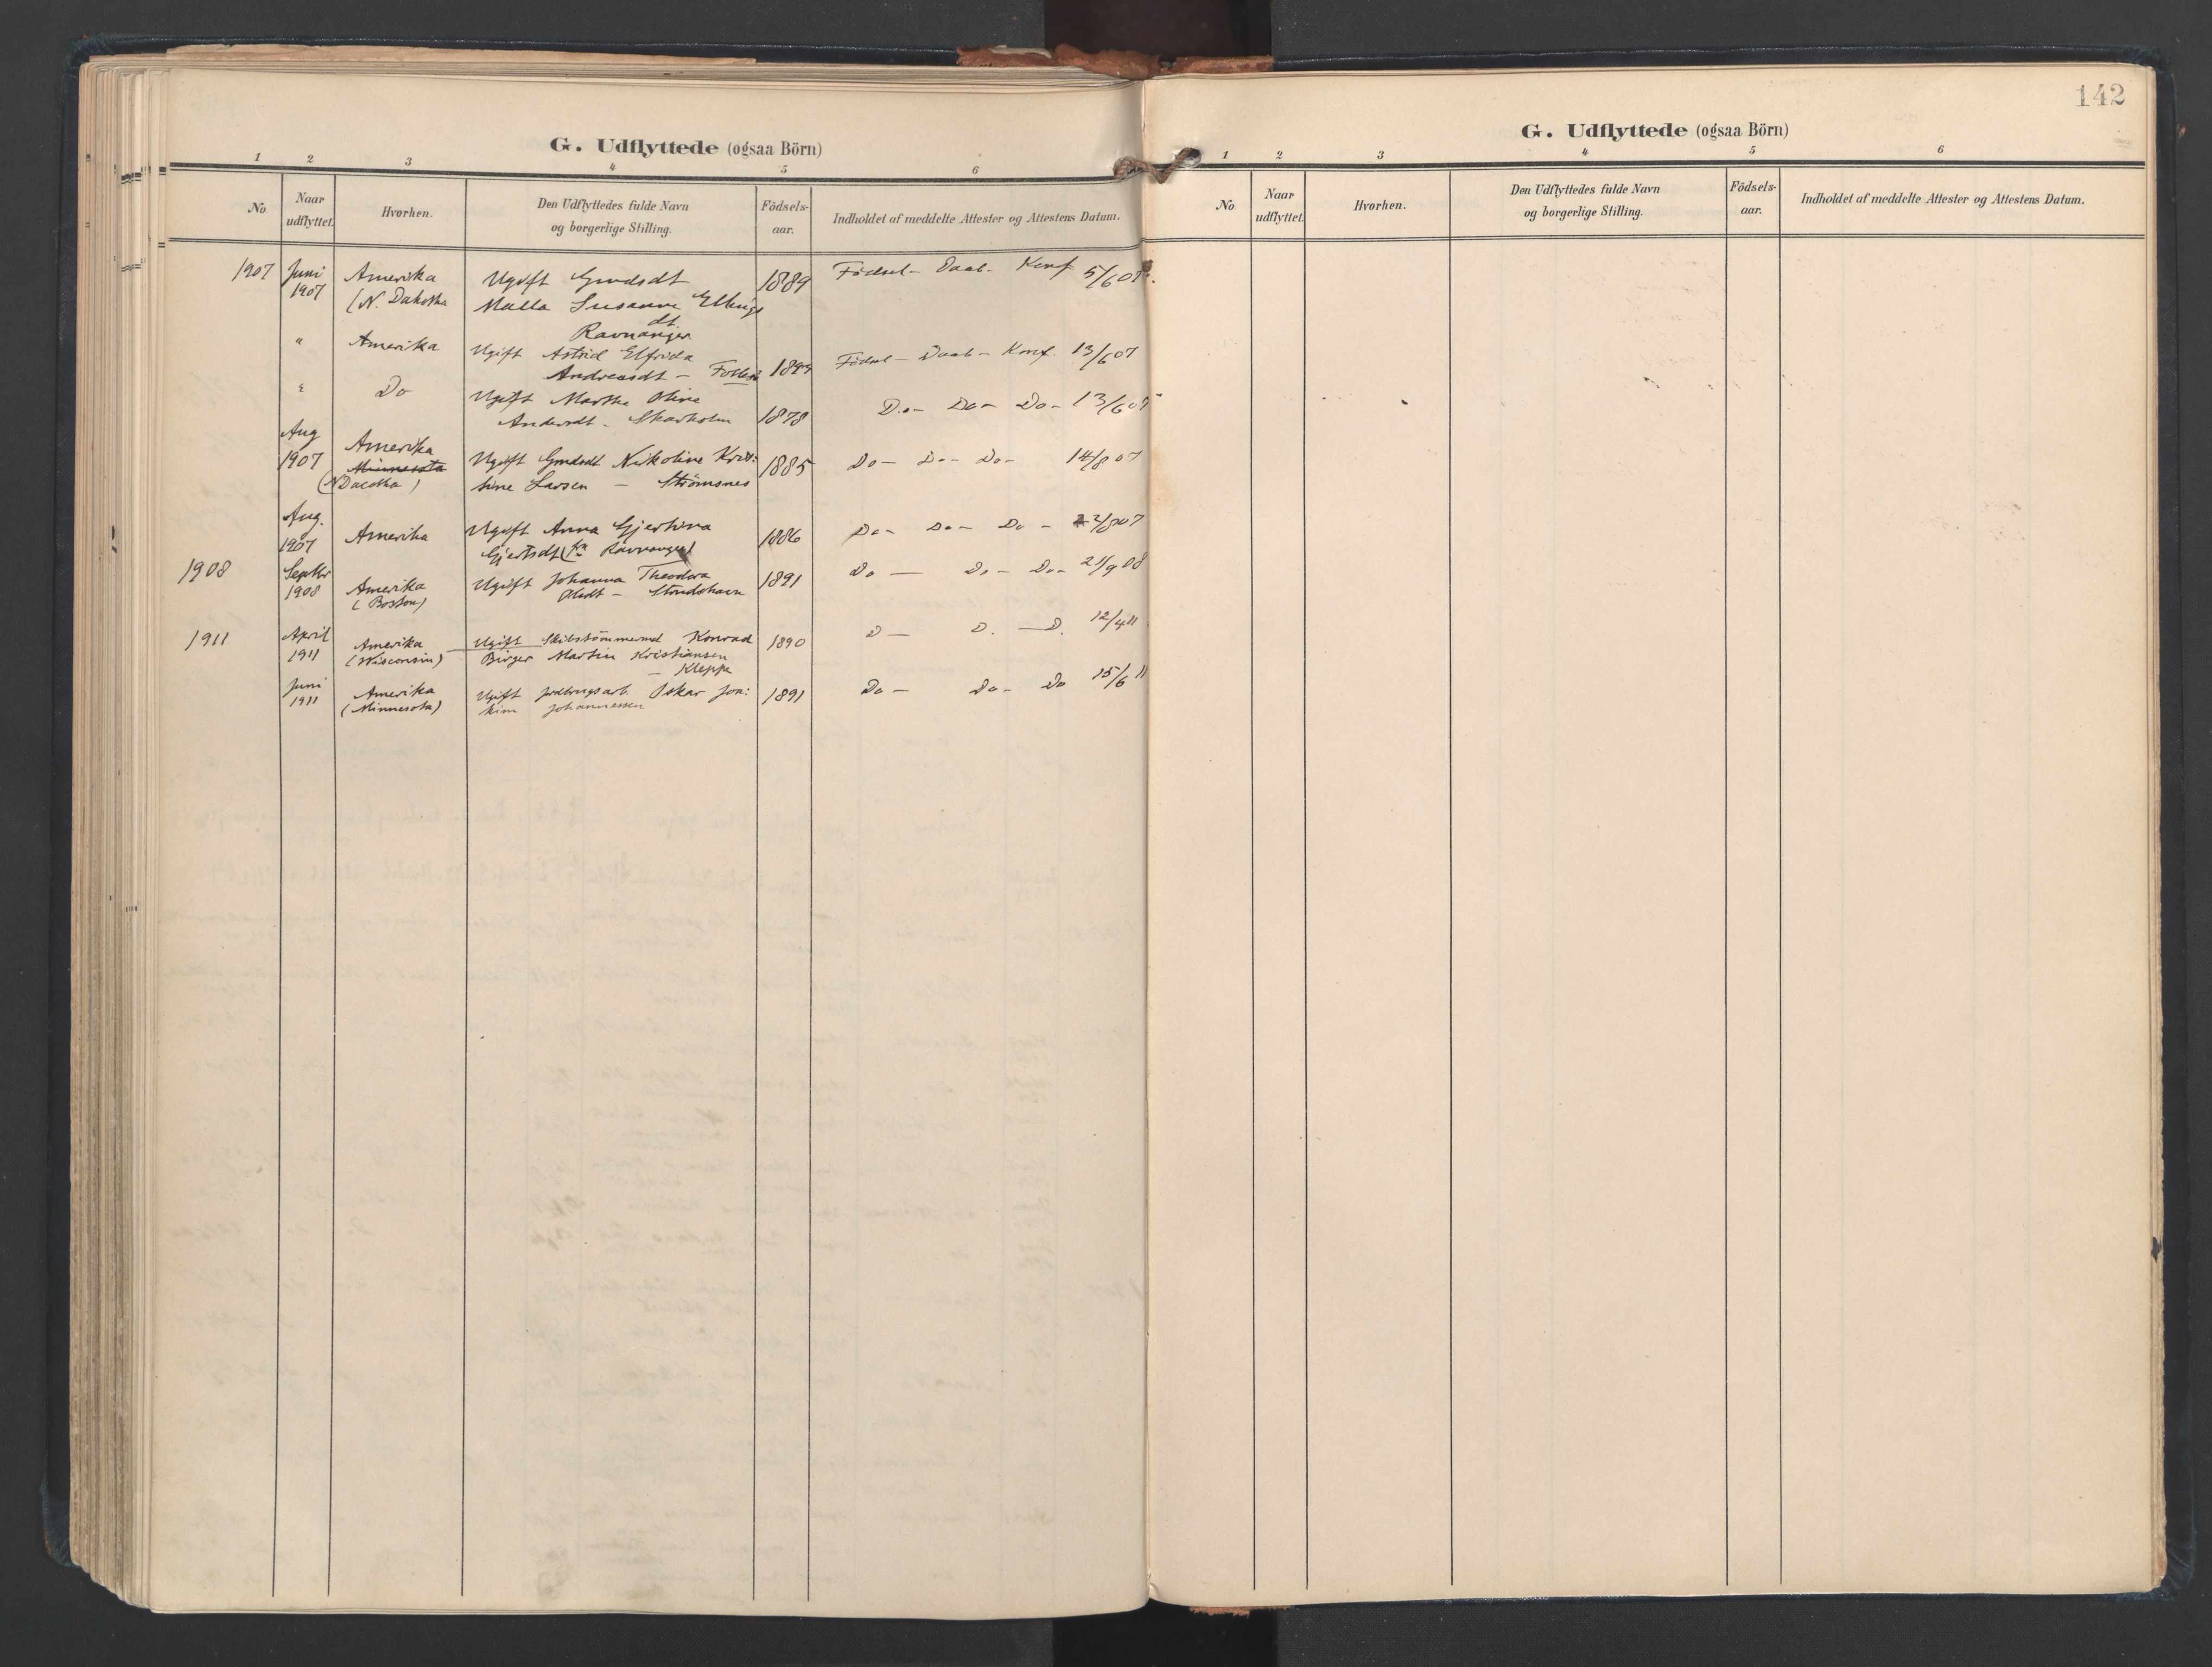 G. Udflyttede (ogsaa Börn)
1 2 3 4 5 6
No
Naar udflyttet.
Hvorhen.
Den Udflyttedes fulde Navn og borgerlige Stilling.
Födsels-aar.
Indholdet af meddelte Attester og Attestens Datum.
1907 Juni 1907 Amerika (N. Dakotha Ugift Gmdsdt 1889 Födsel- Daab- Konf 5/6 07.
Malla Susanne Ellings
dt
Ravnanger
" Amerika Ugift Astrid Elfrida
Andreasdt - 1899 Födsel- Daab- Konf. 13/6 07
" Do Ugift Martha Oline
Andersdt. Skarholm 1878 Do- Do- Do- 13/6 07
Aug 1907 Amerika Minnesota (N Dacotha) Ugift Gmdsdt Nikoline Kris:
tine Larsen - Strömsnes 1885 Do- Do- Do- 14/8 07
Aug. 1907 Amerika Ugift Anna Gjertina
Gjertsdt (fra Ravnanger) 1886 Do- Do- Do- 22/8 07
1908 Septbr 1908 Amerika (Boston) Ugift Johanna Theodora
Olsdt - 1891 Do- Do- Do- 21/9 08
1911 April 1911 Amerika (Wisconsin) Ugift Skibstömmermd Konrad
Birger Martin Kristiansen
- Kleppe 1890 D- D. -D. 12/4 11
Juni 1911 Amerika (Minnesota) Ugift jordbrugsarb. Oskar Joa:
kim Johannessen 1891 Do- Do- Do 15/6 11
142
G. Udflyttede (ogsaa Börn)
1 2 3 4 5 6
No
Naar udflyttet.
Hvorhen.
Den Udflyttedes fulde Navn og borgerlige Stilling.
Födsels-aar.
Indholdet af meddelte Attester og Attestens Datum.